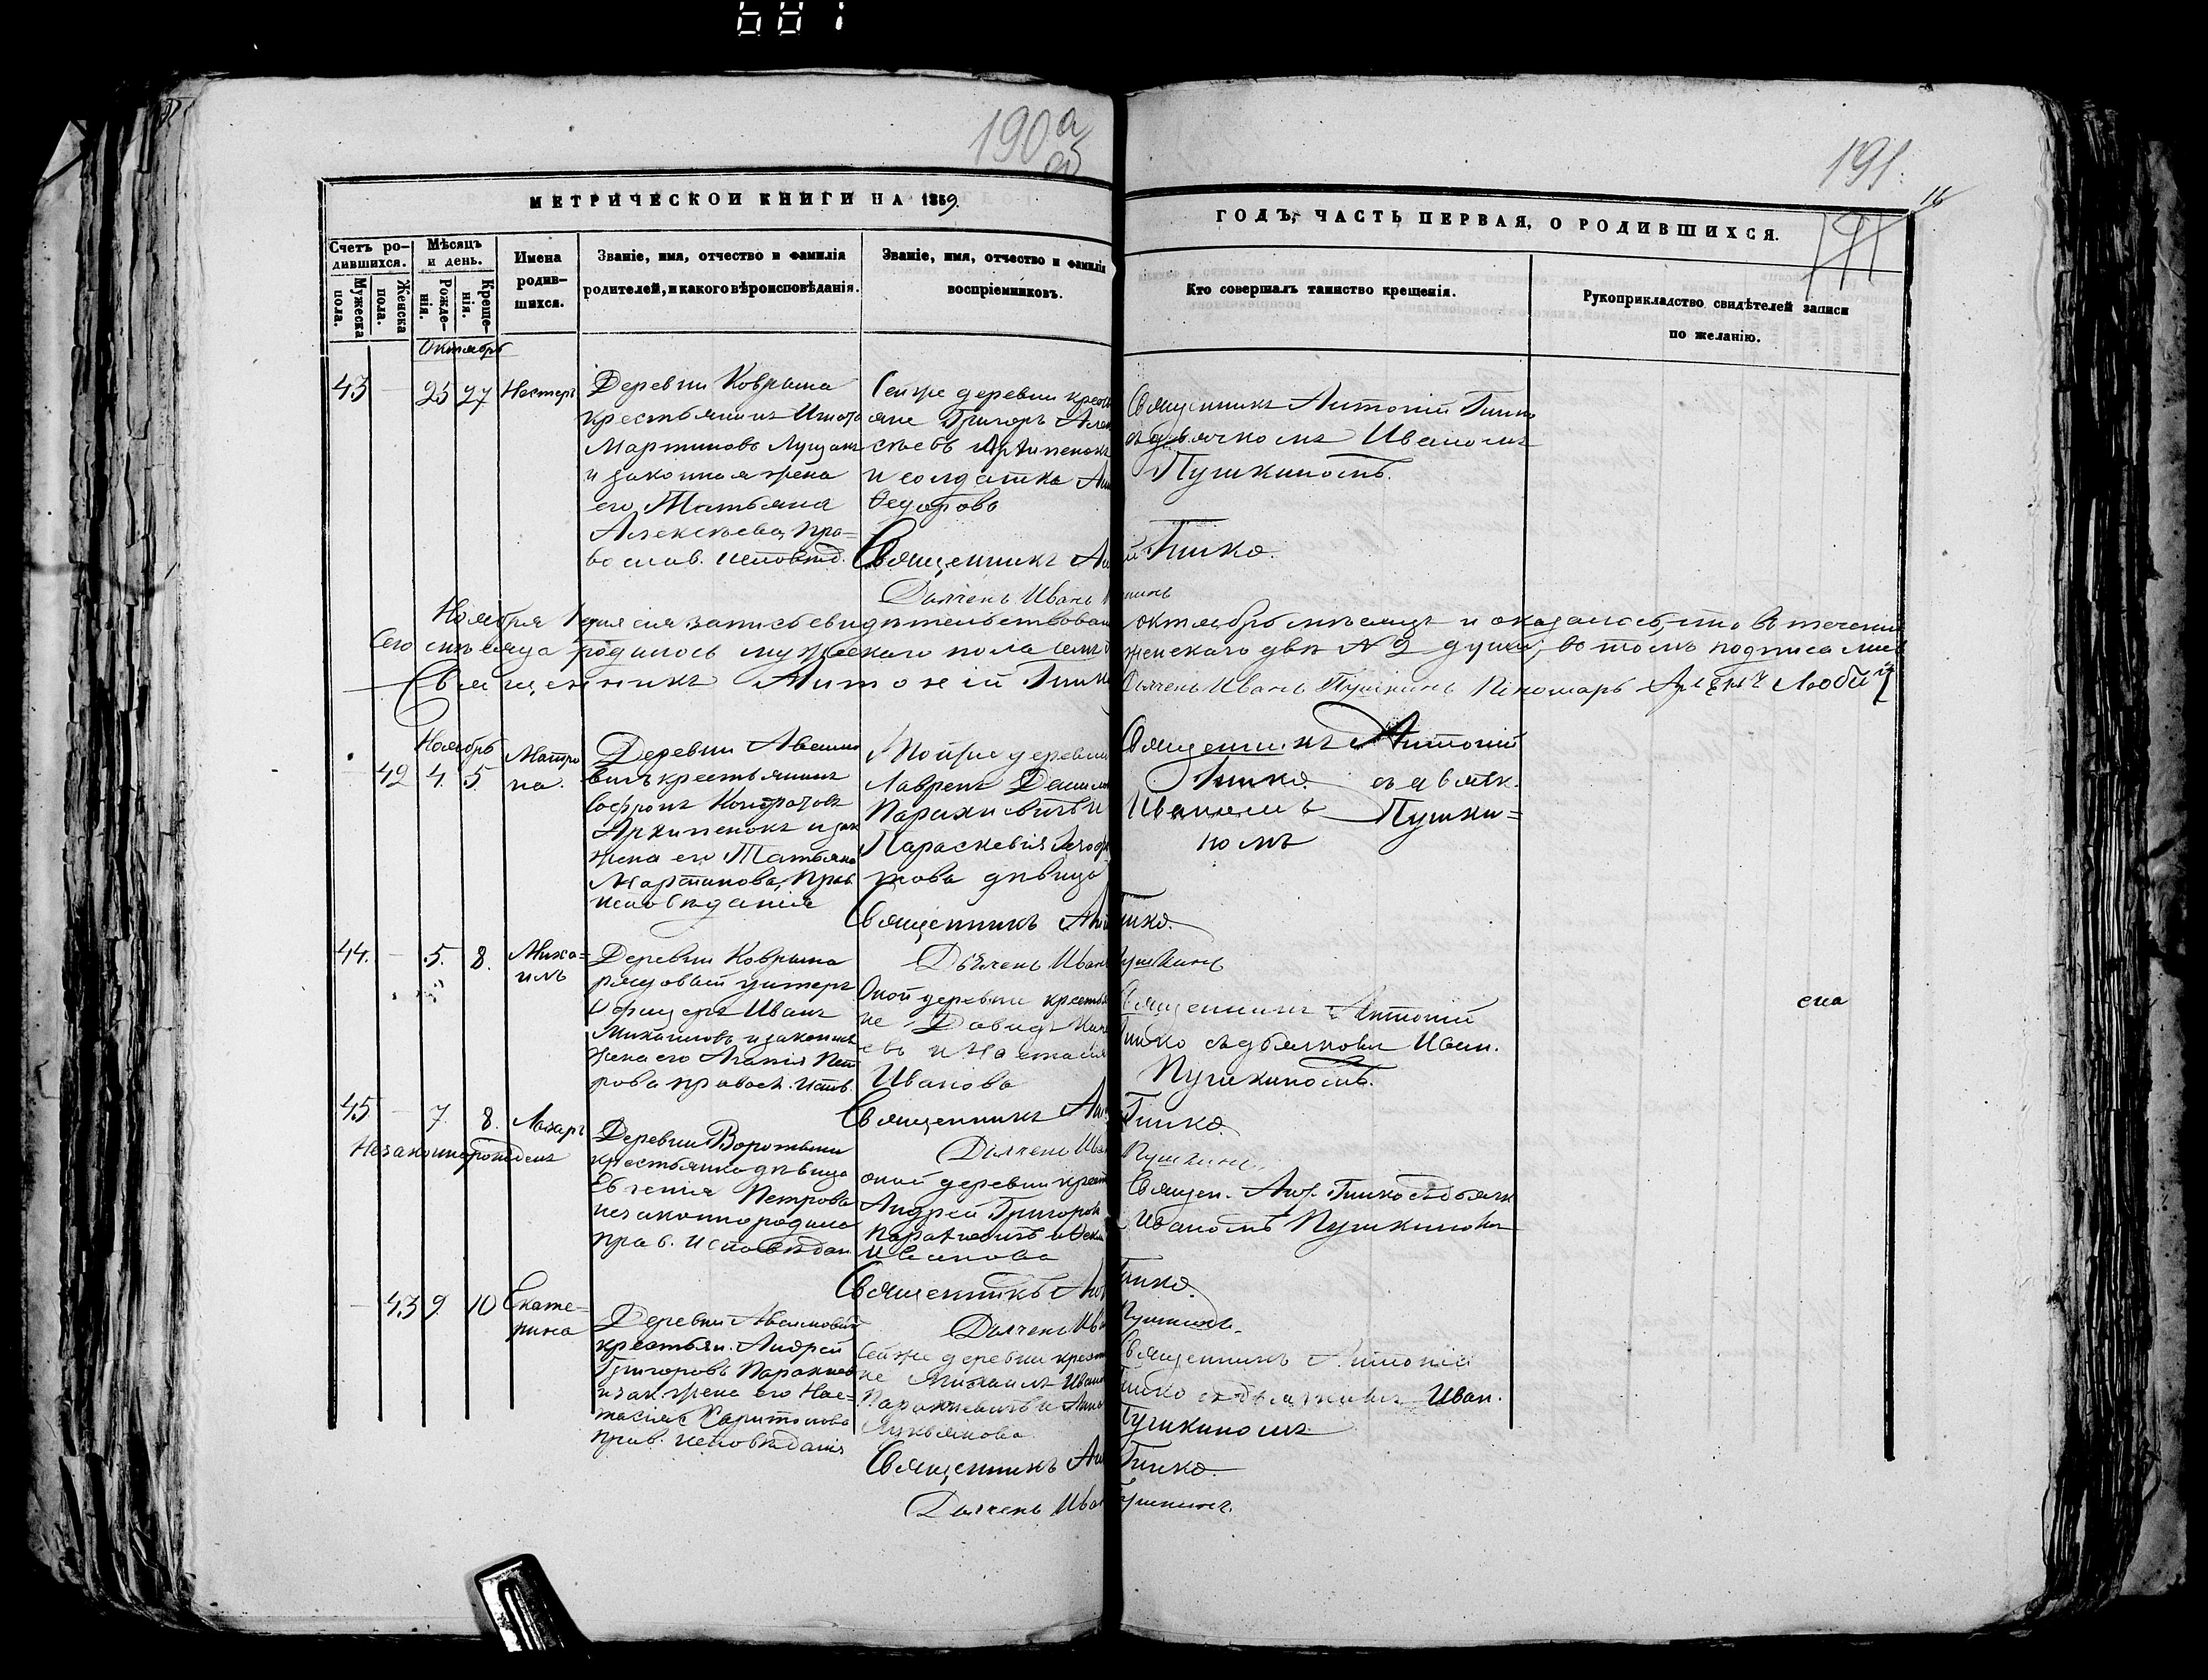 681
190 а
191.
16
191
МЕТРИЧЕСКОЙ КНИГИ НА 1859
ГОДЪ, ЧАСТЬ ПЕРВАЯ, О РОДИВШИХСЯ.
Счетъ ро-
дившихся.
Мужеска
пола.
Женска
пола.
Мѣсяцъ
и день.
Рожде-
нія.
Креще-
нія.
Имена
родив-
шихся.
Званіе, имя, отчество и фамилія
родителей, и какого вѣроисповѣданія.
Званіе, имя, отчество и фамилія
воспріемниковъ.
Кто совершалъ таинство крещенія.
Рукоприкладство свидѣтелей записи
по желанію.
Октябрь
43 — 25 27 Нестеръ
Деревни Коврына
крестьянинъ
Мартиновъ
и законная жена
его Татьяна
Алексѣева, пра-
вослав. исповѣд.
Сей же деревни крест
яне Григоръ Алек
сѣевъ Архипенокъ
и солдатка
Ѳедорова
Священникъ Антоній Гинко
съ дьячкомъ Иваномъ
Пушкинымъ.
Священникъ Ан й Гинко.
Дьячекъ Иванъ
Ноября 1 дня сія запись свидѣтельствован октябрь мѣсяцъ и оказалось, что въ теченіи
Сего мѣсяца родилось мужескаго пола семь женскаго двѣ № 2 души, въ томъ подписались
Священникъ Антоній Гинко Дьячекъ Иванъ Пушкинъ Пономарь
Ноябрь
— 42 4. 5. Матро
на.
Деревни Авсимо
вичъ крестьянинъ
Софронъ Кондратовъ
Архипенокъ и зак
жена его Татьяна
Мартинова, прав
исповѣданія
Той же деревни
Лаврентъ
и
Параскевія
дѣвица
Священникъ Антоній
Гинко съ дьячк.
Иваномъ Пушки=
номъ
Священникъ Ант Гинко.
Дьячекъ Иванъ Пушкинъ
44. — 5. 8. Миха=
илъ
Деревни Коврына
рядовой унтеръ
Офицеръ Иванъ
Михайловъ и законная
жена его Агапія Пет
рова правосл. испов.
Оной деревни крестья
не Давидъ
евъ и Настасія
Иванова
Священникъ Антоній
Гинко съ дьячкомъ Иван.
Пушкинымъ.
сиа
Священникъ Ан Гинко.
Дьячекъ Иван Пушкинъ.
45 — 7. 8. Лазарь
Незаконнорожденъ
Деревни Воротыни
крестьянка дѣвица
Евгенія Петрова
незаконно родила
прав. исповѣдан
оной деревни крест
Андрей Григоров
Иванова
Священ. Ант. Гинко съ дьячк
Иваномъ Пушкинымъ
Священникъ Ант Гинко.
Дьячекъ Ив Пушкинъ.
— 43 9. 10 Екате=
рина
Деревни Авсимовичъ
крестьян. Андрей
Григоровъ
и зак. жена его Нас=
тасія Харитонова
прав. исповѣданія
Сей же деревни крестья
не Михаилъ Иванов
и Анна
Лукьянова
Священникъ Антоній
Гинко съ дьячкомъ Иван.
Пушкинымъ
Священникъ Ан Гинко.
Дьячекъ Иван Пушкинъ.